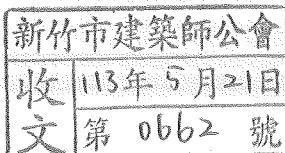 新竹市建築師公會
收文
113年5月21日
第 0662 號